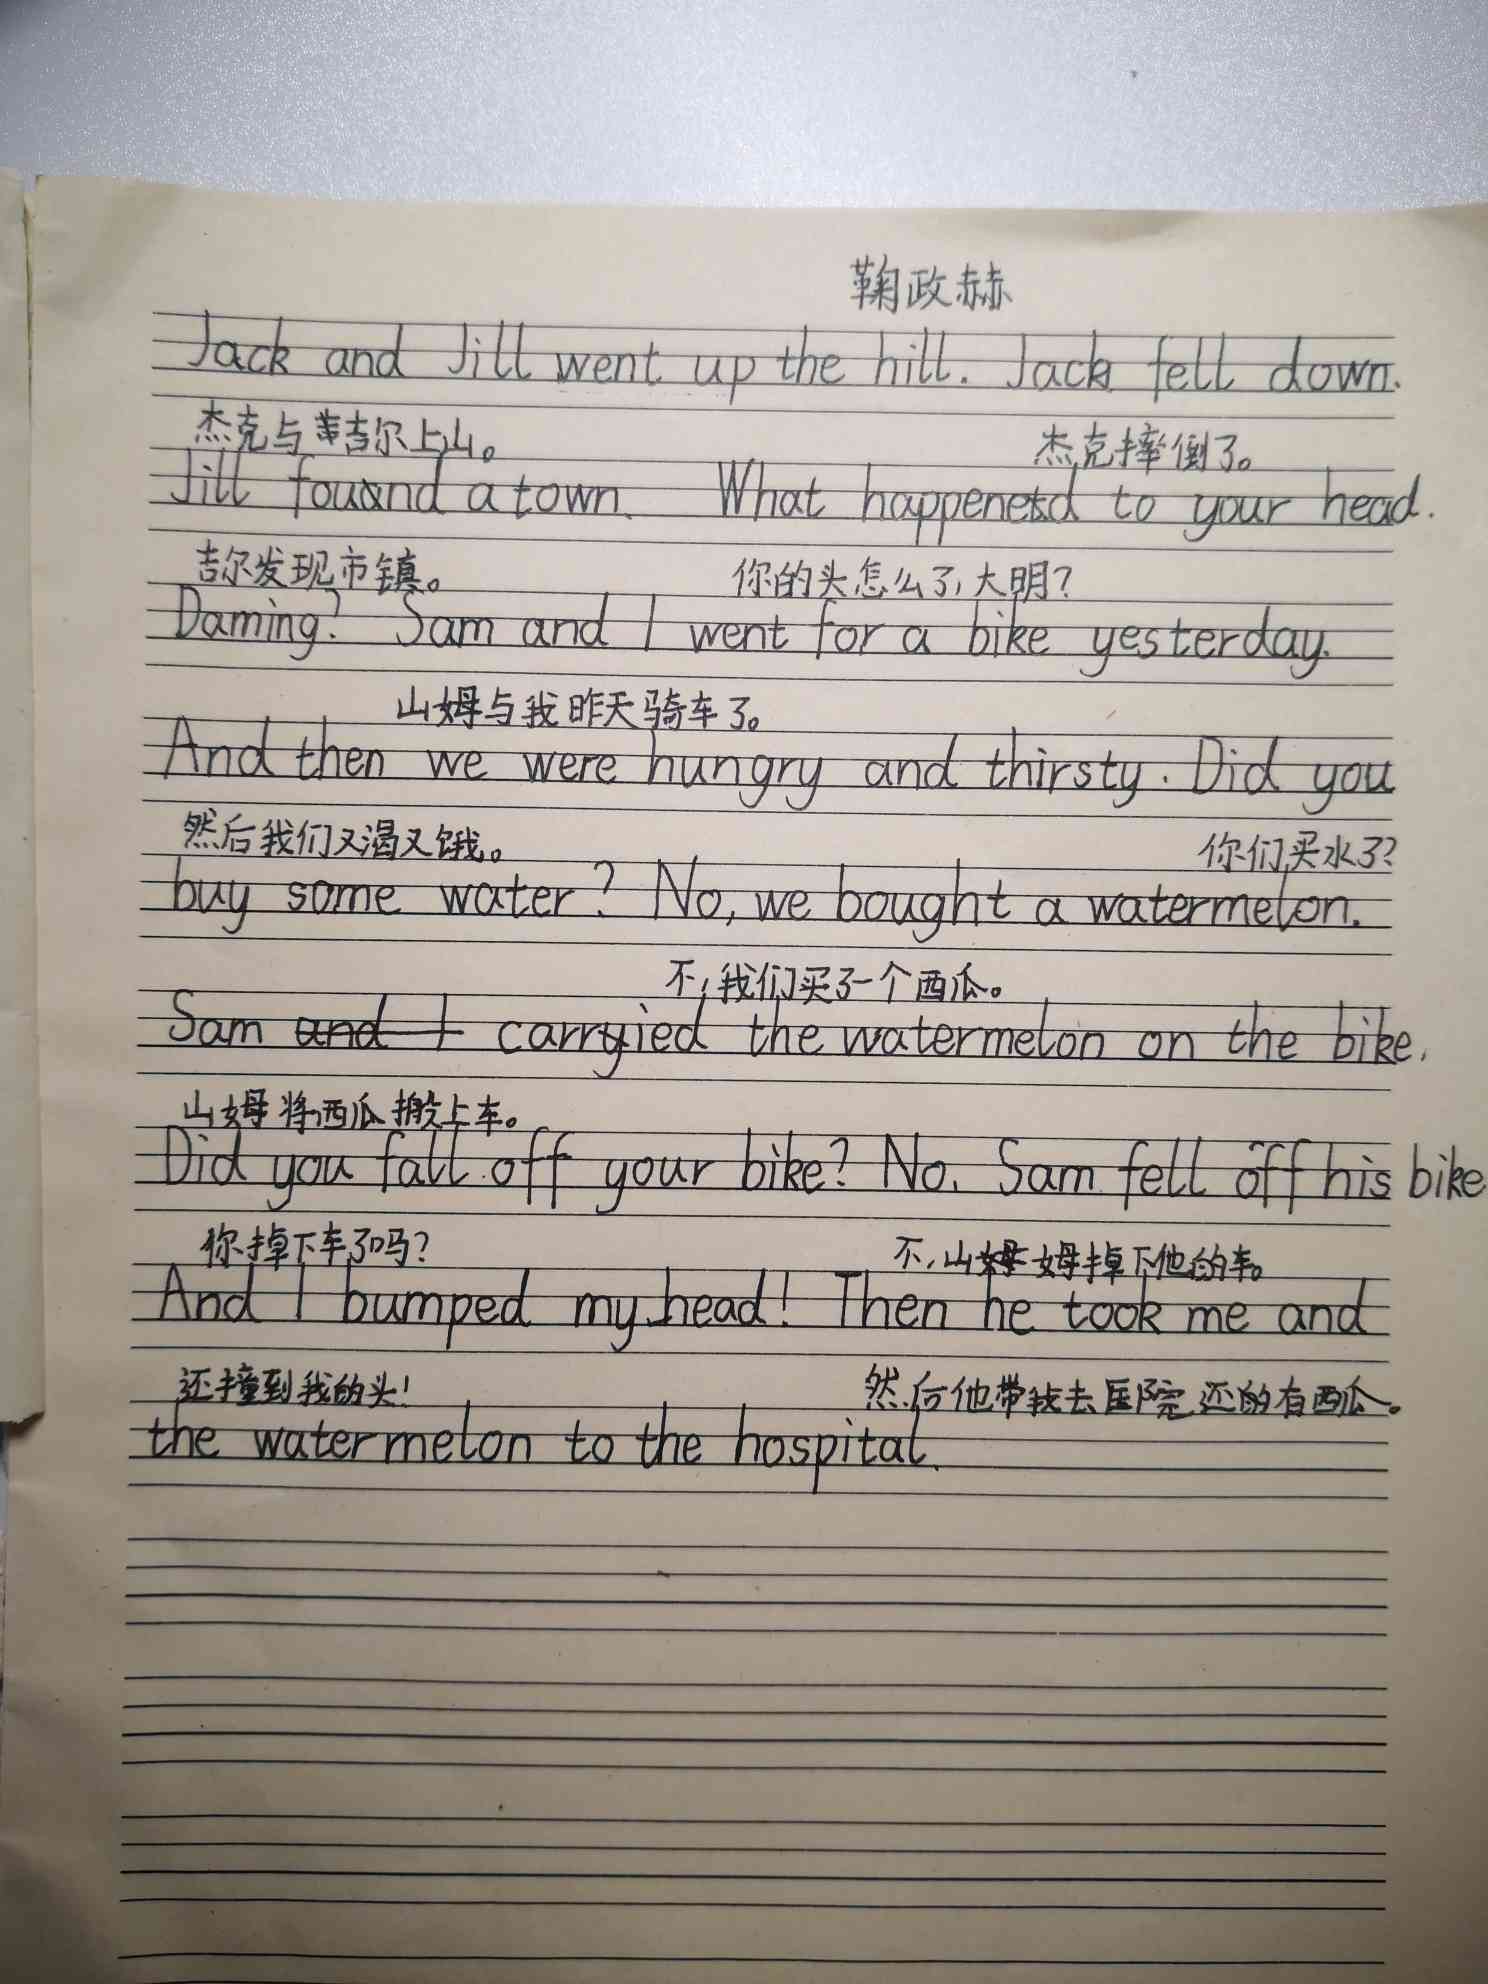 鞠政赫
Jack and Jill went up the hill. Jack fell down.
杰克与吉尔上山。 杰克摔倒了。
Jill found a town. What happened to your head.
吉尔发现市镇。 你的头怎么了,大明?
Daming? Sam and I went for a bike yesterday.
山姆与我昨天骑车了。
And then we were hungry and thirsty. Did you
然后我们又渴又饿。 你们买水了?
buy some water? No, we bought a watermelon.
不,我们买了一个西瓜。
Sam and I carryied the watermelon on the bike.
山姆将西瓜搬上车。
Did you fall off your bike? No. Sam fell off his bike
你掉下车了吗? 不,山姆掉下他的车。
And I bumped my head! Then he took me and
还撞到我的头! 然后他带我去医院还的有西瓜。
the watermelon to the hospital.